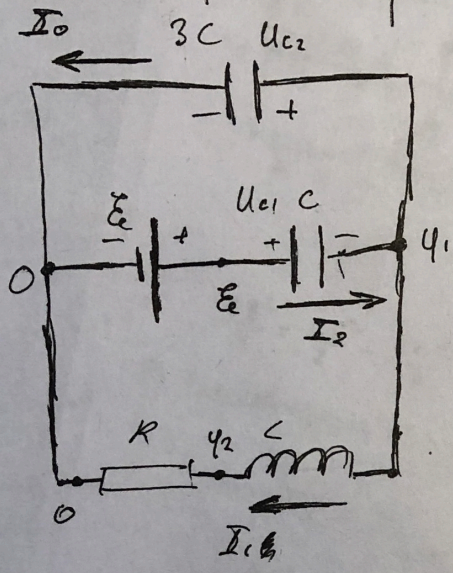 I₀ 3C U_C2
− +
ℰ U_C1 C
− + + −
0 ℰ I₂ φ₁
R φ₂ L
0 I₁